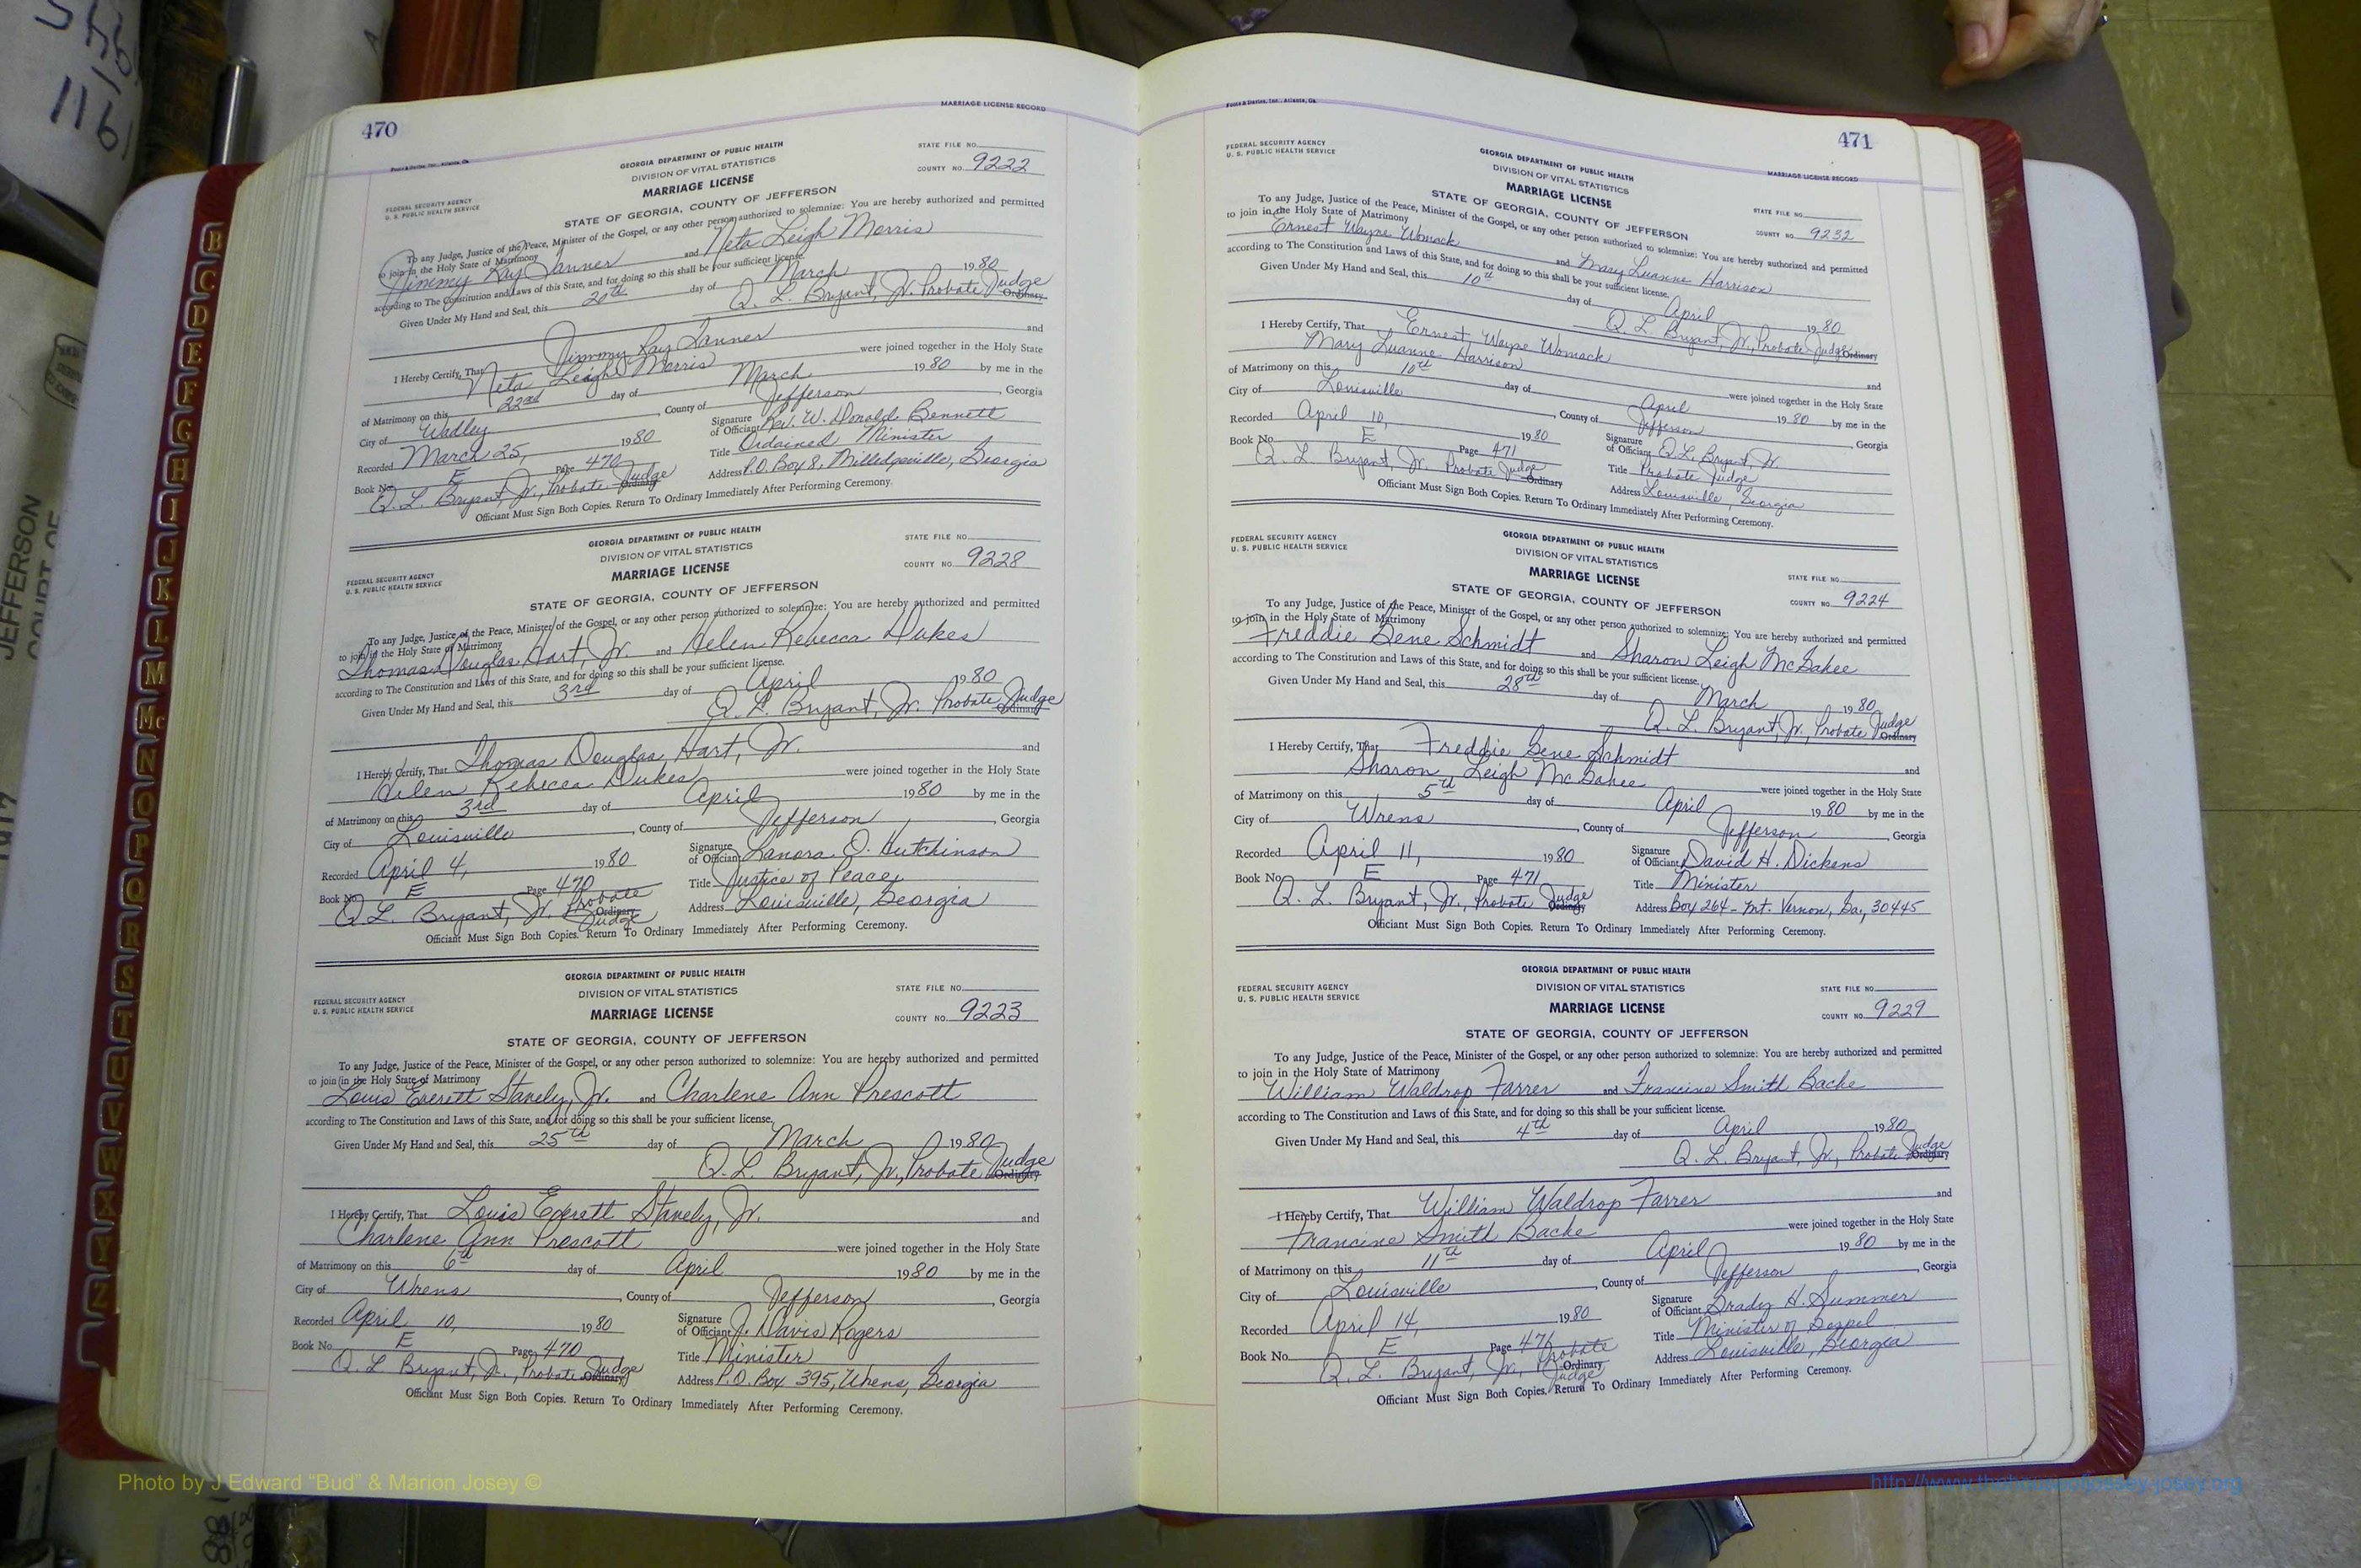 470
MARRIAGE LICENSE RECORD
Foote & Davies, Inc., Atlanta, Ga.
GEORGIA DEPARTMENT OF PUBLIC HEALTH
DIVISION OF VITAL STATISTICS
MARRIAGE LICENSE
STATE FILE NO.
COUNTY NO. 9222
FEDERAL SECURITY AGENCY
U. S. PUBLIC HEALTH SERVICE
STATE OF GEORGIA, COUNTY OF JEFFERSON
To any Judge, Justice of the Peace, Minister of the Gospel, or any other person authorized to solemnize: You are hereby authorized and permitted
to join in the Holy State of Matrimony
Jimmy Ray Tanner and Neta Leigh Morris
according to The Constitution and Laws of this State, and for doing so this shall be your sufficient license.
Given Under My Hand and Seal, this 20th day of March 1980
Q. L. Bryant, Jr. Probate Judge Ordinary
I Hereby Certify, That Jimmy Ray Tanner and
Neta Leigh Morris were joined together in the Holy State
of Matrimony on this 22nd day of March 1980 by me in the
City of Wadley, County of Jefferson, Georgia
Recorded March 25, 1980 Signature of Officiant Rev. W. Donald Bennett
Book No. E Page 470 Title Ordained Minister
Q. L. Bryant, Jr., Probate Judge Ordinary Address P.O. Box 8, Milledgeville, Georgia
Officiant Must Sign Both Copies. Return To Ordinary Immediately After Performing Ceremony.
GEORGIA DEPARTMENT OF PUBLIC HEALTH
DIVISION OF VITAL STATISTICS
MARRIAGE LICENSE
STATE FILE NO.
COUNTY NO. 9228
FEDERAL SECURITY AGENCY
U. S. PUBLIC HEALTH SERVICE
STATE OF GEORGIA, COUNTY OF JEFFERSON
To any Judge, Justice of the Peace, Minister of the Gospel, or any other person authorized to solemnize: You are hereby authorized and permitted
to join in the Holy State of Matrimony
Thomas Douglas Hart, Jr. and Helen Rebecca Dukes
according to The Constitution and Laws of this State, and for doing so this shall be your sufficient license.
Given Under My Hand and Seal, this 3rd day of April 1980
Q. L. Bryant, Jr. Probate Judge Ordinary
I Hereby Certify, That Thomas Douglas Hart, Jr. and
Helen Rebecca Dukes were joined together in the Holy State
of Matrimony on this 3rd day of April 1980 by me in the
City of Louisville, County of Jefferson, Georgia
Recorded April 4, 1980 Signature of Officiant Lanora O. Hutchinson
Book No. E Page 470 Title Justice of Peace
Q. L. Bryant, Jr. Probate Ordinary Judge Address Louisville, Georgia
Officiant Must Sign Both Copies. Return To Ordinary Immediately After Performing Ceremony.
GEORGIA DEPARTMENT OF PUBLIC HEALTH
DIVISION OF VITAL STATISTICS
MARRIAGE LICENSE
STATE FILE NO.
COUNTY NO. 9223
FEDERAL SECURITY AGENCY
U. S. PUBLIC HEALTH SERVICE
STATE OF GEORGIA, COUNTY OF JEFFERSON
To any Judge, Justice of the Peace, Minister of the Gospel, or any other person authorized to solemnize: You are hereby authorized and permitted
to join in the Holy State of Matrimony
Louis Everett Stanely, Jr. and Charlene Ann Prescott
according to The Constitution and Laws of this State, and for doing so this shall be your sufficient license.
Given Under My Hand and Seal, this 25th day of March 1980
Q. L. Bryant, Jr., Probate Judge Ordinary
I Hereby Certify, That Louis Everett Stanely, Jr. and
Charlene Ann Prescott were joined together in the Holy State
of Matrimony on this 6th day of April 1980 by me in the
City of Wrens, County of Jefferson, Georgia
Recorded April 10, 1980 Signature of Officiant J. Davis Rogers
Book No. E Page 470 Title Minister
Q. L. Bryant, Jr., Probate Judge Ordinary Address P.O. Box 395, Wrens, Georgia
Officiant Must Sign Both Copies. Return To Ordinary Immediately After Performing Ceremony.
Foote & Davies, Inc., Atlanta, Ga.
471
MARRIAGE LICENSE RECORD
FEDERAL SECURITY AGENCY
U. S. PUBLIC HEALTH SERVICE
GEORGIA DEPARTMENT OF PUBLIC HEALTH
DIVISION OF VITAL STATISTICS
MARRIAGE LICENSE
STATE FILE NO.
COUNTY NO. 9232
STATE OF GEORGIA, COUNTY OF JEFFERSON
To any Judge, Justice of the Peace, Minister of the Gospel, or any other person authorized to solemnize: You are hereby authorized and permitted
to join in the Holy State of Matrimony
Ernest Wayne Womack and Mary Luanne Harrison
according to The Constitution and Laws of this State, and for doing so this shall be your sufficient license.
Given Under My Hand and Seal, this 10th day of April 1980
Q. L. Bryant, Jr., Probate Judge Ordinary
I Hereby Certify, That Ernest Wayne Womack and
Mary Luanne Harrison were joined together in the Holy State
of Matrimony on this 10th day of April 1980 by me in the
City of Louisville, County of Jefferson, Georgia
Recorded April 10, 1980 Signature of Officiant Q. L. Bryant, Jr.
Book No. E Page 471 Title Probate Judge
Q. L. Bryant, Jr. Probate Judge Ordinary Address Louisville, Georgia
Officiant Must Sign Both Copies. Return To Ordinary Immediately After Performing Ceremony.
FEDERAL SECURITY AGENCY
U. S. PUBLIC HEALTH SERVICE
GEORGIA DEPARTMENT OF PUBLIC HEALTH
DIVISION OF VITAL STATISTICS
MARRIAGE LICENSE
STATE FILE NO.
COUNTY NO. 9224
STATE OF GEORGIA, COUNTY OF JEFFERSON
To any Judge, Justice of the Peace, Minister of the Gospel, or any other person authorized to solemnize: You are hereby authorized and permitted
to join in the Holy State of Matrimony
Freddie Gene Schmidt and Sharon Leigh McGahee
according to The Constitution and Laws of this State, and for doing so this shall be your sufficient license.
Given Under My Hand and Seal, this 28th day of March 1980
Q. L. Bryant, Jr., Probate Judge Ordinary
I Hereby Certify, That Freddie Gene Schmidt and
Sharon Leigh McGahee were joined together in the Holy State
of Matrimony on this 5th day of April 1980 by me in the
City of Wrens, County of Jefferson, Georgia
Recorded April 11, 1980 Signature of Officiant David H. Dickens
Book No. E Page 471 Title Minister
Q. L. Bryant, Jr., Probate Judge Ordinary Address Box 264 - Mt. Vernon, Ga., 30445
Officiant Must Sign Both Copies. Return To Ordinary Immediately After Performing Ceremony.
GEORGIA DEPARTMENT OF PUBLIC HEALTH
DIVISION OF VITAL STATISTICS
MARRIAGE LICENSE
STATE FILE NO.
COUNTY NO. 9229
FEDERAL SECURITY AGENCY
U. S. PUBLIC HEALTH SERVICE
STATE OF GEORGIA, COUNTY OF JEFFERSON
To any Judge, Justice of the Peace, Minister of the Gospel, or any other person authorized to solemnize: You are hereby authorized and permitted
to join in the Holy State of Matrimony
William Waldrop Farrer and Francine Smith Backe
according to The Constitution and Laws of this State, and for doing so this shall be your sufficient license.
Given Under My Hand and Seal, this 4th day of April 1980
Q. L. Bryant, Jr., Probate Judge Ordinary
I Hereby Certify, That William Waldrop Farrer and
Francine Smith Backe were joined together in the Holy State
of Matrimony on this 11th day of April 1980 by me in the
City of Louisville, County of Jefferson, Georgia
Recorded April 14, 1980 Signature of Officiant Grady H. Summer
Book No. E Page 471 Title Minister of Gospel
Q. L. Bryant, Jr. Probate Ordinary Judge Address Louisville, Georgia
Officiant Must Sign Both Copies. Return To Ordinary Immediately After Performing Ceremony.
B
C
D
E
F
G
H
I
J
K
L
M
Mc
N
O
P
Q
R
S
T
U
V
W
X
Y
Z
JEFFERSON
COURT OF
1161
Photo by J Edward “Bud” & Marion Josey ©
http://www.thehouseofjossey-josey.org